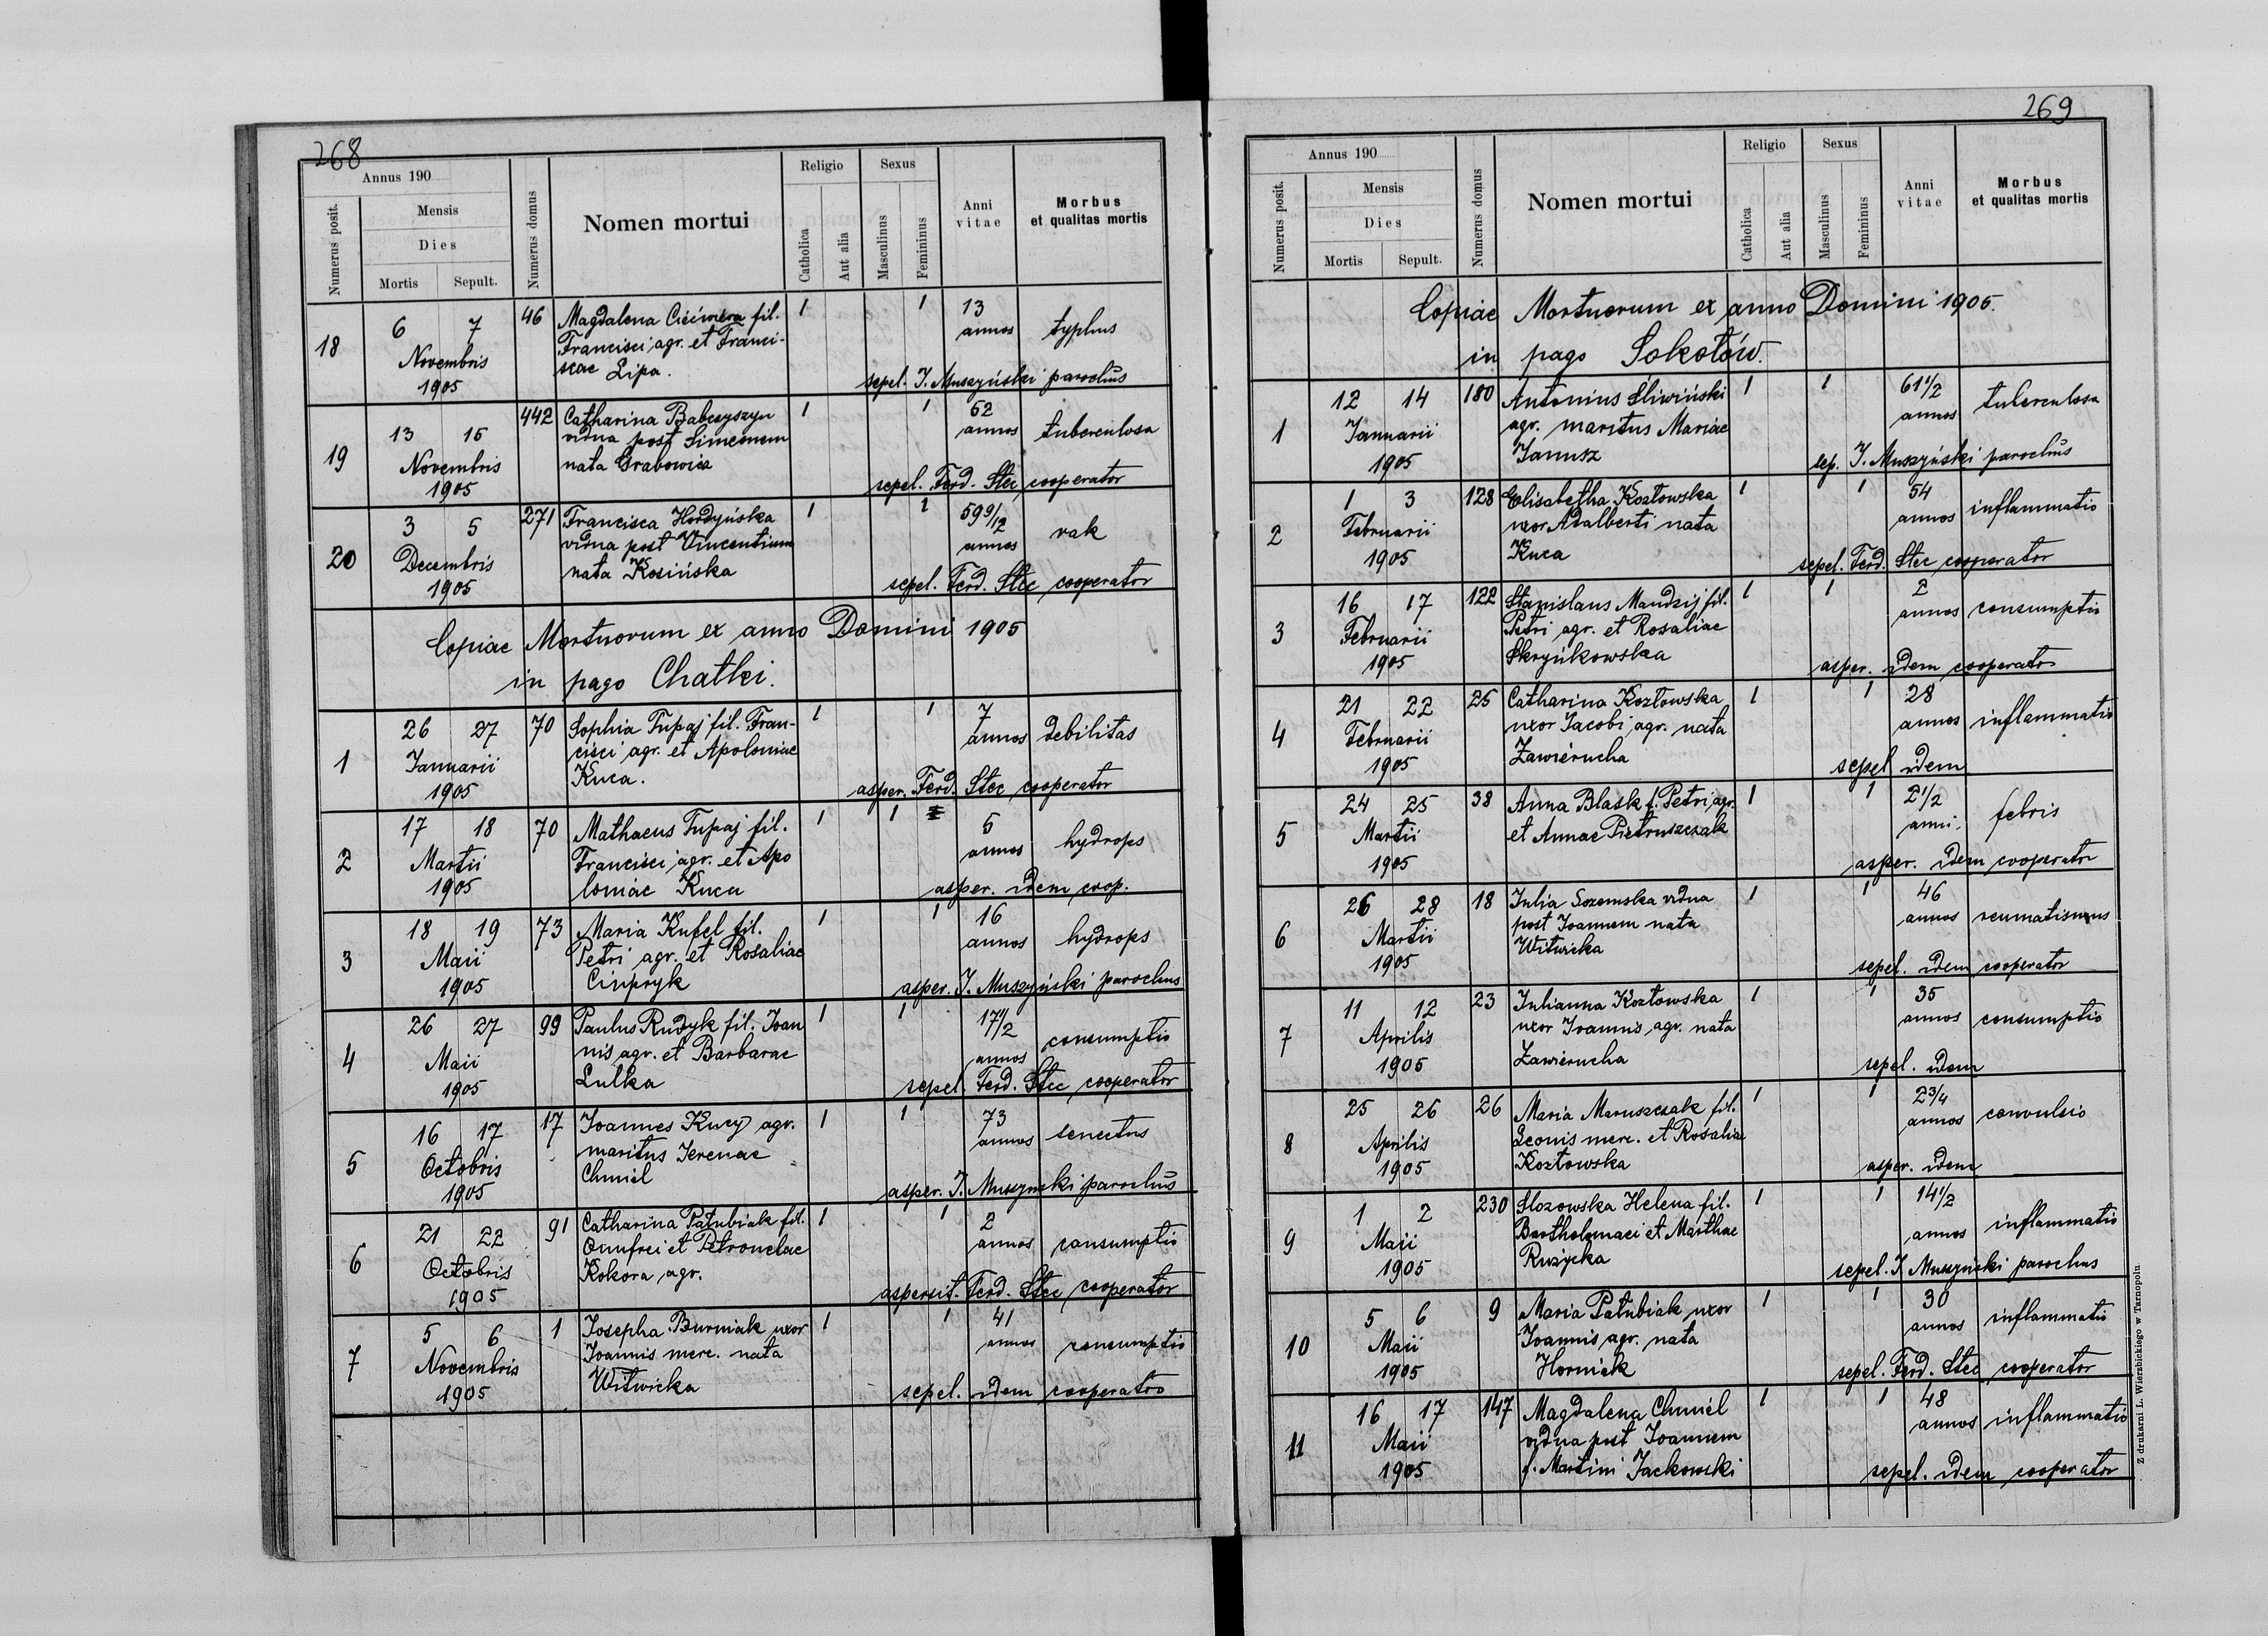 268
Annus 190
Numerus posit.
Mensis
Dies
Mortis Sepult.
Numerus domus
Nomen mortui
Religio
Catholica
Aut alia
Sexus
Masculinus
Femininus
Anni
vitae
Morbus
et qualitas mortis
18
6 7
Novembris
1905
46
Magdalena Cićwiera fil.
Francisci agr. et Franci-
scae Lipa.
1 1
13
annos
typhus
sepel. J. Muszyński parochus
19
13 15
Novembris
1905
442
Catharina Babczyszyn
vidua post Simeonem
nata Grabowicz
1 1
52
annos
tuberculosa
sepel. Ferd. Stec cooperator
20
3 5
Decembris
1905
271
Francisca Hordyńska
vidua post Vincentium
nata Kosińska
1 1
59 9/12
annos
rak
sepel. Ferd. Stec cooperator
Copiae Mortuorum ex anno Domini 1905
in pago Chatki.
1
26 27
Januarii
1905
70
Sophia Tupaj fil. Fran-
cisci agr. et Apoloniae
Kuca.
1 1
7
annos
debilitas
asper. Ferd. Stec cooperator
2
17 18
Martii
1905
70
Mathaeus Tupaj fil.
Francisci agr. et Apo
loniae Kuca
1 1
5
annos
hydrops
asper. idem coop.
3
18 19
Maii
1905
73
Maria Kufel fil.
Petri agr. et Rosaliae
Ciupryk
1 1
16
annos
hydrops
asper. J. Muszyński parochus
4
26 27
Maii
1905
99
Paulus Rudyk fil. Joan
nis agr. et Barbarae
Lulka
1 1
17 1/2
annos
consumptio
sepel. Ferd. Stec cooperator
5
16 17
Octobris
1905
17
Joannes Kucy agr.
maritus Irenae
Chmiel
1 1
73
annos
senectus
asper. J. Muszynski parochus
6
21 22
Octobris
1905
91
Catharina Patubiak fil.
Onufrei et Petronelae
Kokora agr.
1 1
2
annos
consumptio
aspersit. Ferd. Stec cooperator
7
5 6
Novembris
1905
1
Josepha Burniak uxor
Joannis merc. nata
Witwicka
1 1
41
annos
consumptio
sepel. idem cooperator
269
Annus 190
Numerus posit.
Mensis
Dies
Mortis Sepult.
Numerus domus
Nomen mortui
Religio
Catholica
Aut alia
Sexus
Masculinus
Femininus
Anni
vitae
Morbus
et qualitas mortis
Copiae Mortuorum ex anno Domini 1905.
in pago Sokołów.
1
12 14
Januarii
1905
180
Antonius Śliwiński
agr. maritus Mariae
Janusz
1 1
61 1/2
annos
tuberculosa
sep. J. Muszyński parochus
2
1 3
Februarii
1905
128
Elisabetha Kozłowska
uxor Adalberti nata
Kuca
1 1
54
annos
inflammatio
sepel. Ferd. Stec cooperator
3
16 17
Februarii
1905
122
Stanislaus Maudzij fil.
Petri agr. et Rosaliae
Skryńkowska
1 1
2
annos
consumptio
asper. idem cooperator
4
21 22
Februarii
1905
25
Catharina Kozłowska
uxor Jacobi agr. nata
Zawierucha
1 1
28
annos
inflammatio
sepel idem
5
24 25
Martii
1905
38
Anna Blask f. Petri agr.
et Annae Pietruszczak
1 1
2 1/2
anni.
febris
asper. idem cooperator
6
26 28
Martii
1905
18
Julia Sozomska vidua
post Joannem nata
Witwicka
1 1
46
annos
reumatismus
sepel. idem cooperator
7
11 12
Aprilis
1905
23
Julianna Kozłowska
uxor Joannis agr. nata
Zawierucha
1 1
35
annos
consumptio
sepel. idem
8
25 26
Aprilis
1905
26
Maria Maruszczak fil.
Leonis merc. et Rosalia
Kozłowska
1 1
2 3/4
annos
convulsio
asper. idem
9
1 2
Maii
1905
230
Slozowska Helena fil.
Bartholomaei et Marthae
Rużycka
1 1
14 1/2
annos
inflammatio
sepel. J Muszyński parochus
10
5 6
Maii
1905
9
Maria Patubiak uxor
Joannis agr. nata
Horniak
1 1
30
annos
inflammatio
sepel. Ferd. Stec cooperator
11
16 17
Maii
1905
147
Magdalena Chmiel
vidua post Joannem
f. Martini Jackowski
1 1
48
annos
inflammatio
sepel. idem cooperator
Z drukarni L. Wierzbickiego w Tarnopolu